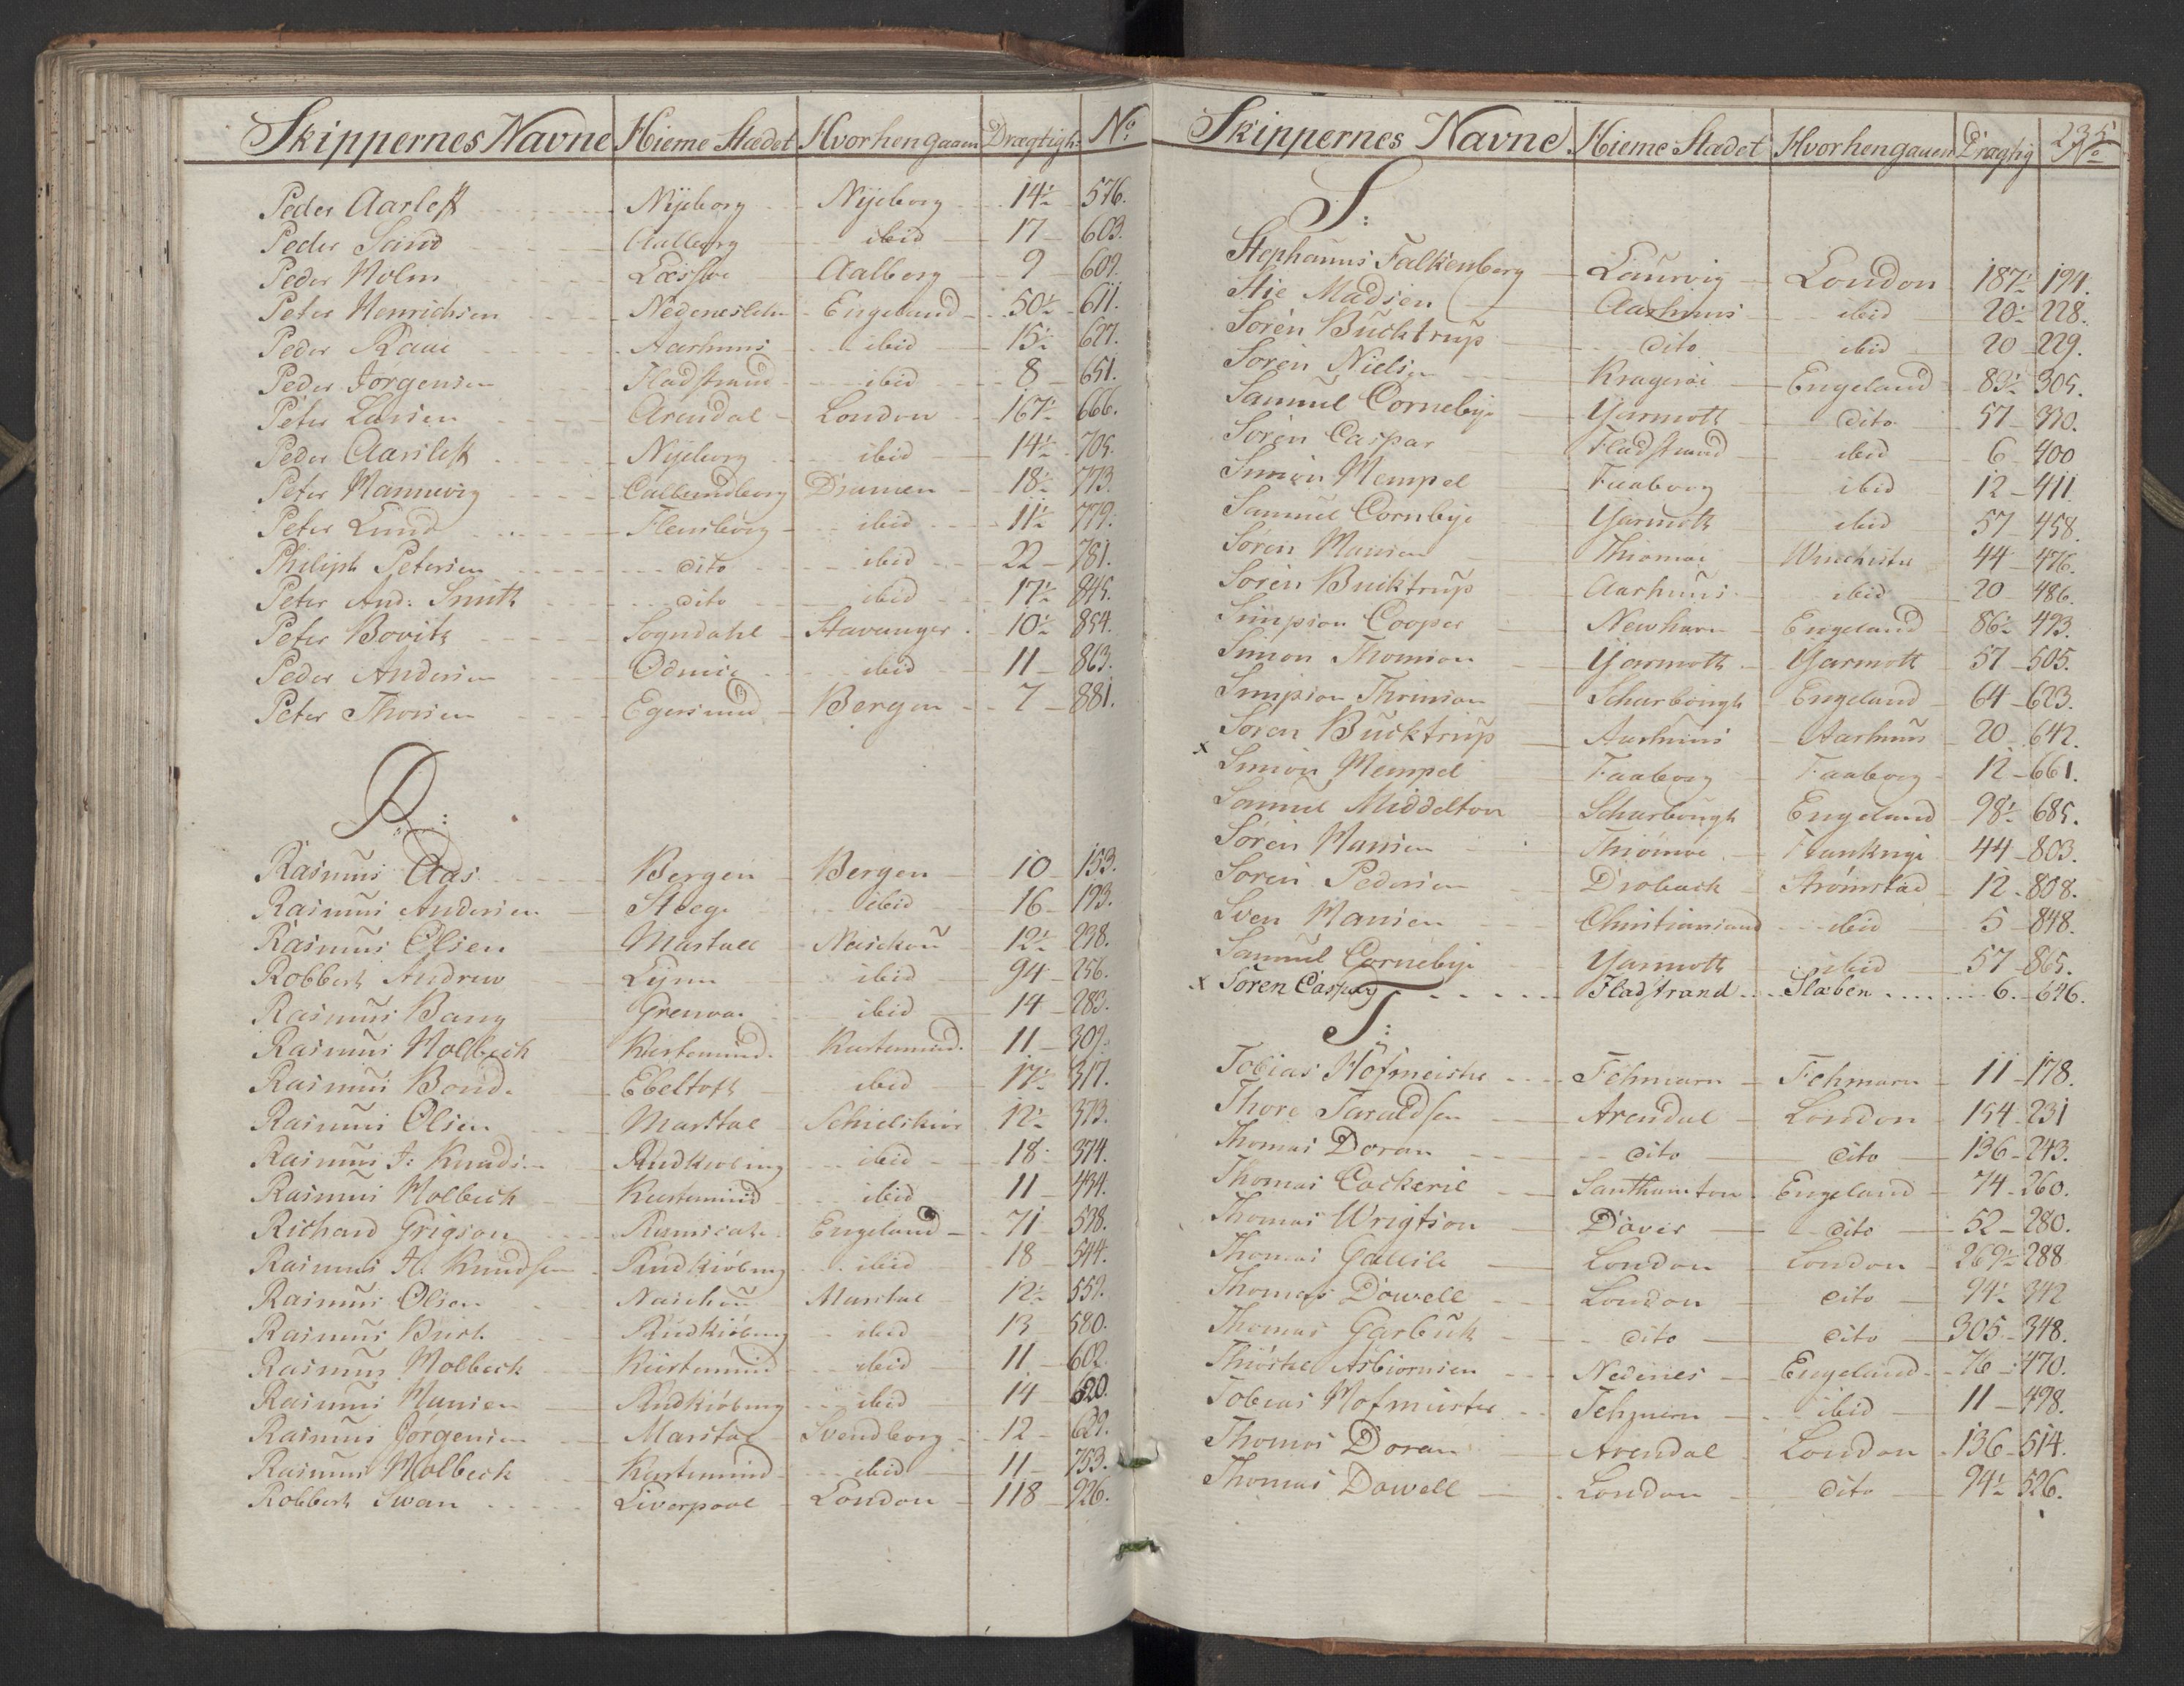 Skippernes Navne Hieme Stædet Hvorhen gaaen Drægtigh: No
Peder Aarlest Nyeborg Nyeborg 14½ 576.
Peder Sand Aalborg ibid 17 603.
Peder Holm Læssøe Aalborg 9 609.
Peter Henrichsen Engeland 50½ 611.
Peder Aarhuus ibid 15½ 627.
Peder Jørgensen Fladstrand ibid 8 651.
Peter Larsen Arendal London 167½ 666.
Peder Aarslest Nyeborg ibid 14½ 705.
Peter Mannevig Callundborg Dramen 18½ 773.
Peter Lund Flensborg ibid 11½ 779.
Philiph Petersen dito ibid 22 781.
Peter And: Smith dito ibid 17½ 845.
Peter Bovitz Sogndahl Stavanger 10½ 854.
Peder Andersen Odense ibid 11 863.
Peter Thorsen Egersund Bergen 7 881.
R:
Rasmus Aas Bergen Bergen 10 153.
Rasmus Andersen Steege ibid 16 193.
Rasmus Olsen Mastall Naschou 12½ 238.
Robbert Andrew Lynn ibid 94 256.
Rasmus Bang Grenaa ibid 14 283.
Rasmus Holbech Kiertemind. Kiertemind. 11 309.
Rasmus Bond. Ebeltoft ibid 17½ 317.
Rasmus Olsen Marstal Schielskiør 12½ 373.
Rasmus J: Knudsen Rudkiøbing ibid 18 374.
Rasmus Holbech Kiertemind ibid 11 434.
Richard Grigson Engeland 71 538.
Rasmus H. Knudsen Rudkiøbing ibid 18 544.
Rasmus Olsen Naschou Marstal 12½ 559.
Rasmus Rudkiøbing ibid 13 580.
Rasmus Holbech Kiertemind ibid 11 602.
Rasmus Hansen Rudkiøbing ibid 14 620.
Rasmus Jørgensen Marstal Svendborg 12 629.
Rasmus Holbech Kiertemind ibid 11 753.
Robbert Swan Liverpool London 118 926.
235
Skippernes Navne. Hieme Stædet Hvorhengaaen Drægtig No
S:
Stephanus Falkenberg Laurvig London 187½ 194.
Stie Madsen Aarhuus ibid 20½ 228.
Søren Bucktrup dito ibid 20 229.
Søren Nielsen Kragerøe Engeland 83½ 305.
Samuel Cornebye Yarmoth dito 57 330.
Søren Caspar Fladstrand ibid 6 400
Simon Hempel Faaborg ibid 12 411
Samuel Cornbye Yarmoth ibid 57 458.
Søren Hansen Thiømøe 44 476.
Søren Bucktrup Aarhuus ibid 20 486.
Simpson Cooper Newhavn Engeland 86½ 493.
Simon Thomson Yarmoth Yarmoth 57 505.
Simpson Thomson Scharbough Engeland 64 623.
Søren Bucktrup Aarhuus Aarhuus 20 642.
x Simon Hempel Faaborg Faaborg 12 661.
Samuel Middelton Scharbough Engeland 98½ 685.
Søren Hansen Thiømøe Frankrige 44 803.
Søren Pedersen Drøback Strømstad 12 808.
Sven Hansen Christiansand ibid 5 848.
Samuel Cornebye Yarmoth ibid 57 865.
x Søren Caspar Fladstrand Slæben 6. 646.
T:
Tobias Hofmeister Fehmarn Fehmarn 11 178.
Thore Taraldsen Arendal London 154 231
Thomas Doran dito dito 136 243.
Thomas Cockeril Santhamton Engeland 74 260.
Thomas Wrigtson Dover dito 52 280.
Thomas London London 269½ 288
Thomas Dowell London dito 94½ 342
Thomas Garbuk dito dito 305 348.
Asbiørnsen Nedenes Engeland 76 470.
Tobias Hofmeister Fehmern ibid 11 498.
Thomas Doran Arendal London 136 514.
Thomas Dowell London dito 94½ 526.